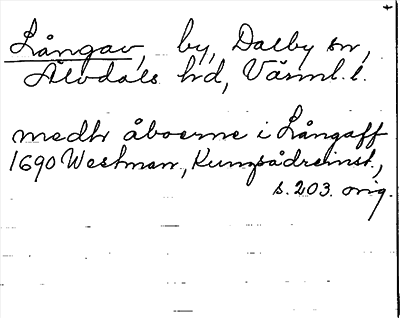 Långav, by, Dalby sn,
Älvdals hd, Värml. l.
medh åboerne i Långaff
1690 Westman, Kungsådreinst.,
s. 203. orig.